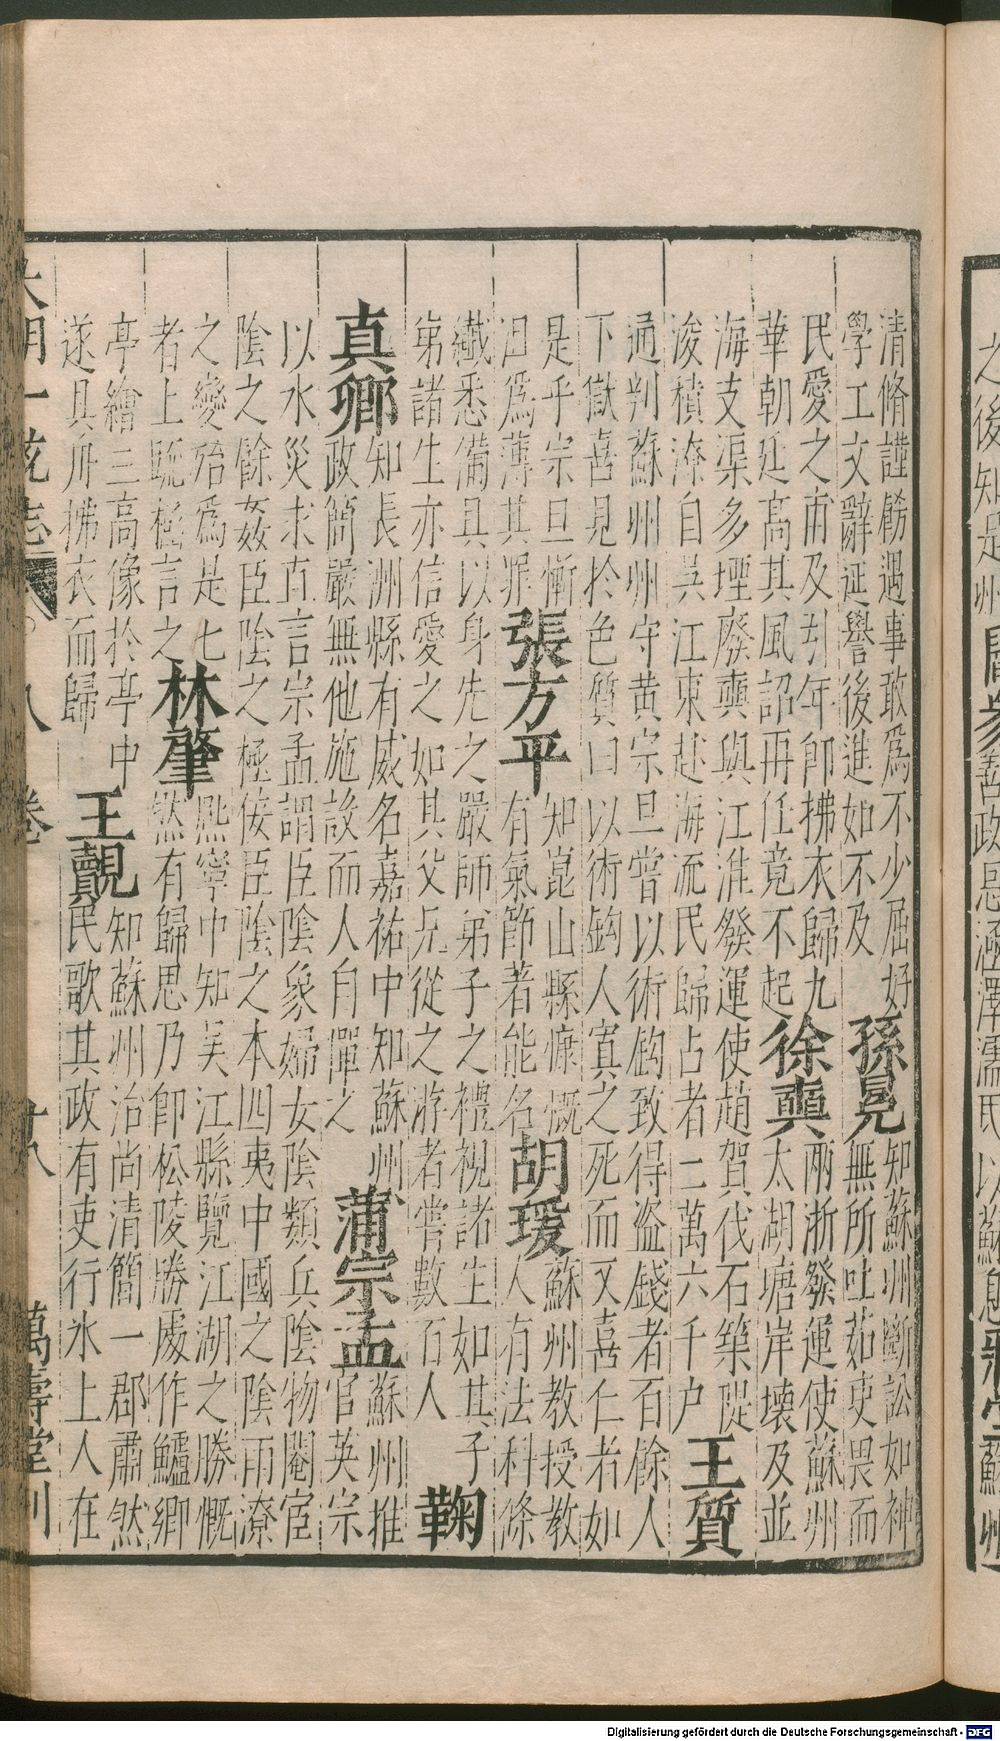 清脩謹餝遇事敢爲不少屈好
學工文辭延譽後進如不及
孫冕
知蘇州斷訟如神
無所吐茹吏畏而
民愛之甫及引年卽拂衣歸九
華朝廷高其風詔再任竟不起
徐奭
兩浙發運使蘇州
太湖塘岸壞及並
海支渠多堙廢奭與江淮發運使趙賀伐石築隄
浚積潦自吳江東赴海流民歸占者二萬六千户
王質
通判蘇州州守黄宗旦嘗以術鈎致得盜錢者百餘人
下獄喜見於色質曰以術鈎人寘之死而又喜仁者如
是乎宗旦慚
沮爲薄其罪
張方平
知崑山縣慷慨
有氣節著能名
胡瑗
蘇州教授教
人有法科條
纎悉備具以身先之嚴師弟子之禮視諸生如其子
弟諸生亦信愛之如其父兄從之游者嘗數百人
鞠
真卿
知長洲縣有威名嘉祐中知蘇州
政簡嚴無他施設而人自憚之
蒲宗孟
蘇州推
官英宗
以水災求直言宗孟謂臣陰象婦女陰類兵陰物閹宦
陰之餘姦臣陰之極佞臣陰之本四夷中國之陰雨潦
之變殆爲是七
者上疏極言之
林肇
熙寧中知吴江縣覽江湖之勝慨
然有歸思乃卽松陵勝處作鱸鄉
亭繪三高像於亭中
遂具舟拂衣而歸
王覿
知蘇州治尚清簡一郡肅然
民歌其政有吏行氷上人在
大明一統志 八卷 十八 萬壽堂刊
Digitalisierung gefördert durch die Deutsche Forschungsgemeinschaft - DFG